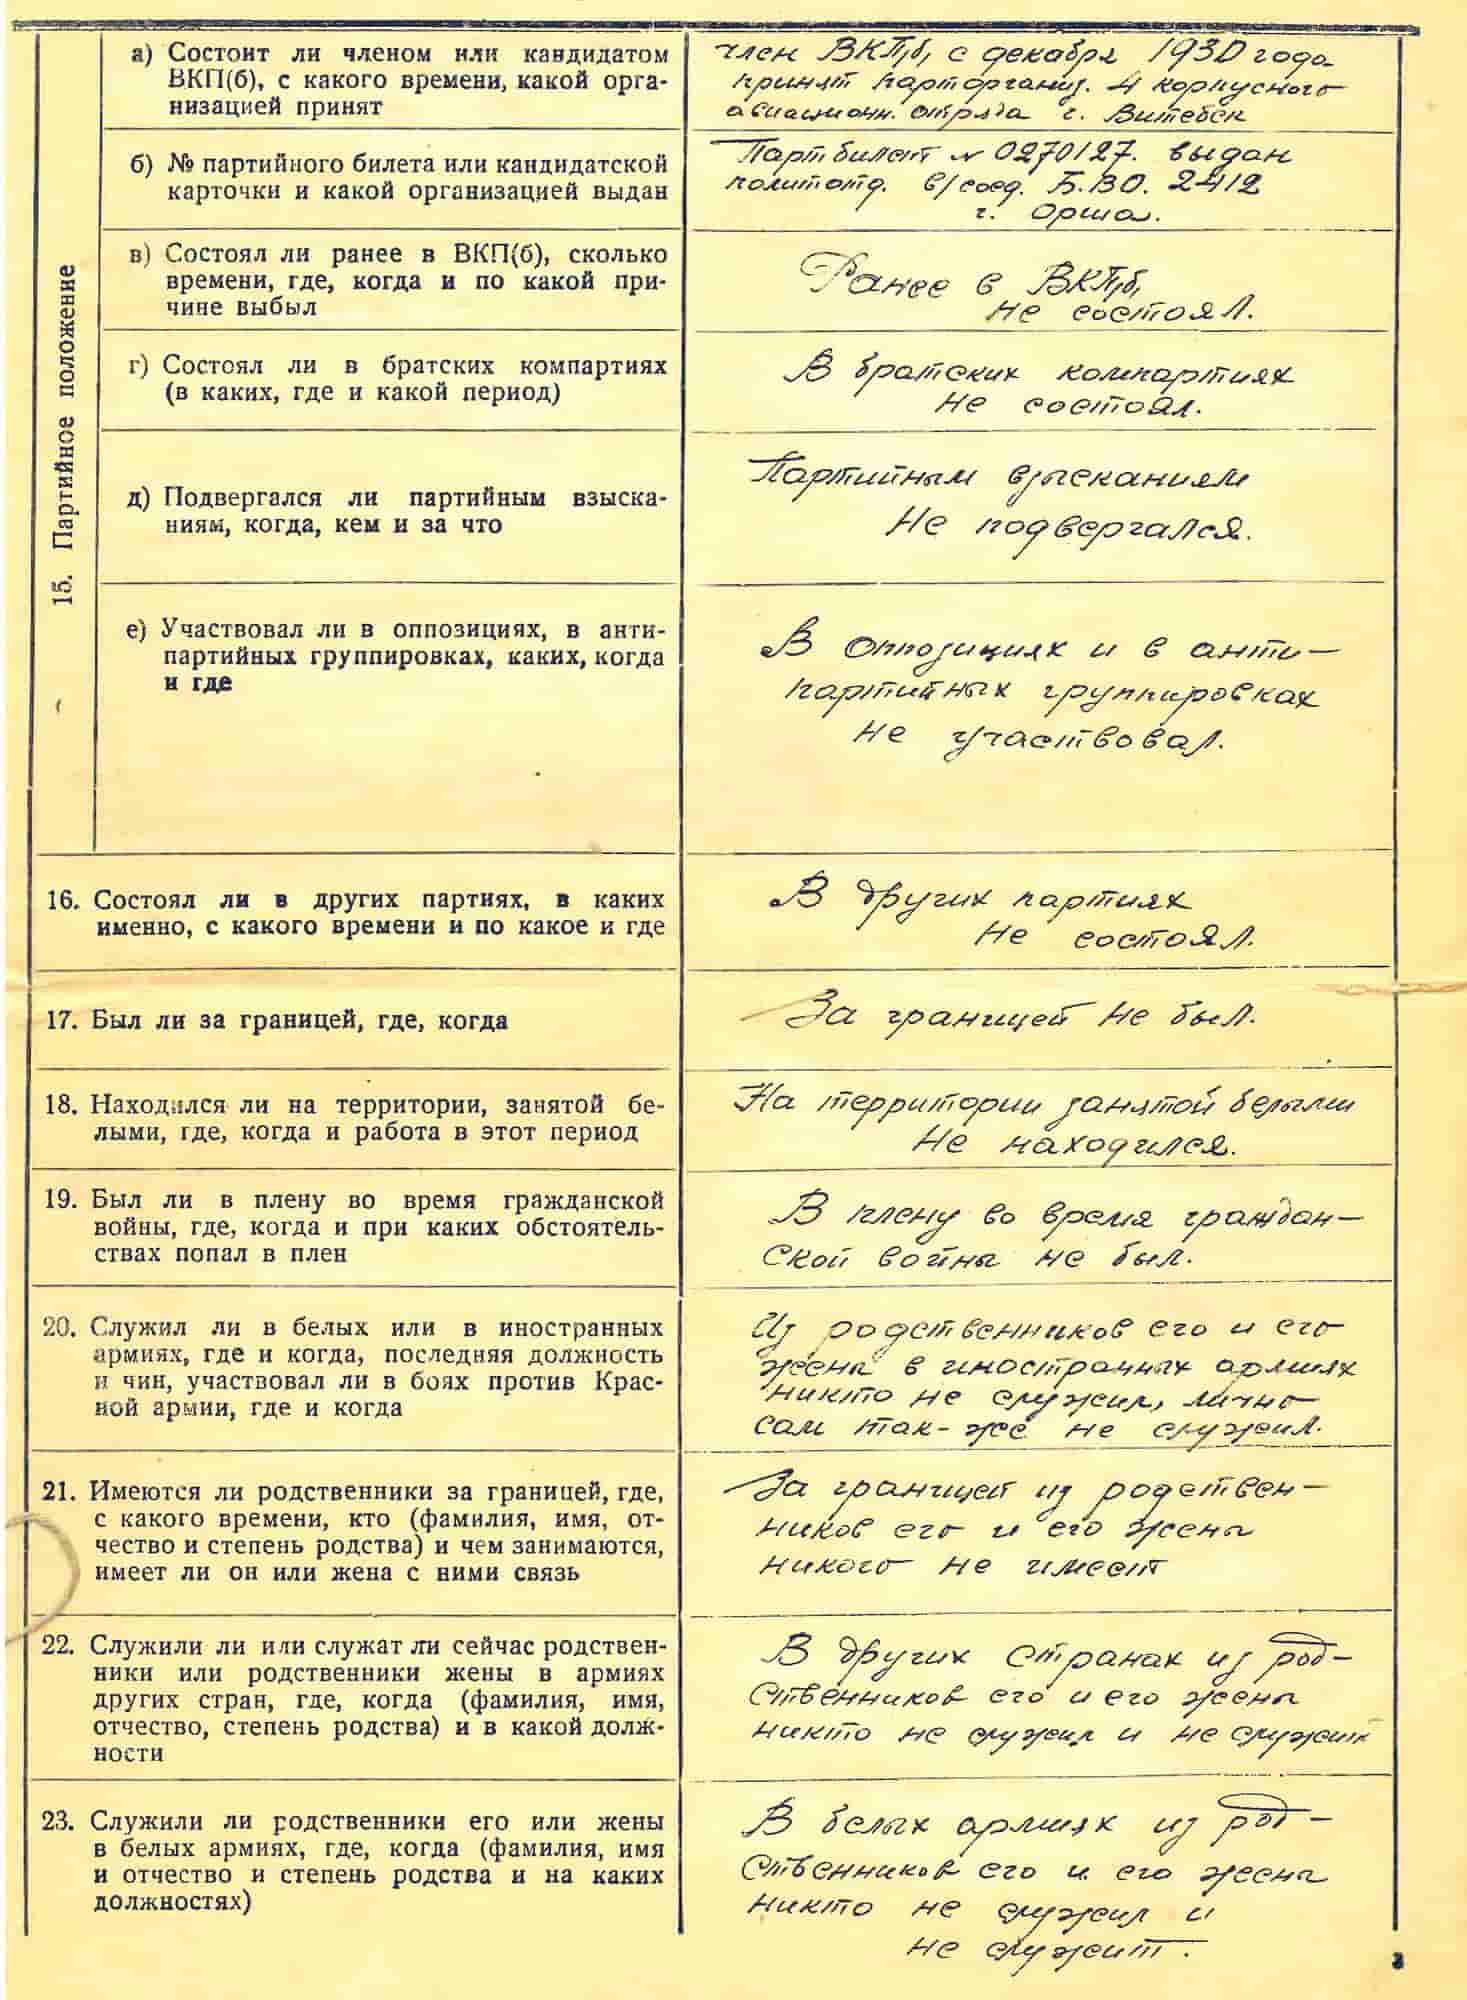 15. Партийное положение
а) Состоит ли членом или кандидатом
ВКП(б), с какого времени, какой орга-
низацией принят
член ВКП(б) с декабря 1930 года
принят парторганиз. 4 корпусного
авиационн. отряда г. Витебск
б) № партийного билета или кандидатской
карточки и какой организацией выдан
Партбилет № 0270127. выдан
политотд. в/соед. Б.ВО. 2412
г. Орша.
в) Состоял ли ранее в ВКП(б), сколько
времени, где, когда и по какой при-
чине выбыл
Ранее в ВКП(б)
не состоял.
г) Состоял ли в братских компартиях
(в каких, где и какой период)
В братских компартиях
не состоял.
д) Подвергался ли партийным взыска-
ниям, когда, кем и за что
Партийным взысканиям
не подвергался.
е) Участвовал ли в оппозициях, в анти-
партийных группировках, каких, когда
и где
В оппозициях и в анти-
партийных группировках
не участвовал.
16. Состоял ли в других партиях, в каких
именно, с какого времени и по какое и где
В других партиях
не состоял.
17. Был ли за границей, где, когда
За границей не был.
18. Находился ли на территории, занятой бе-
лыми, где, когда и работа в этот период
На территории занятой белыми
не находился.
19. Был ли в плену во время гражданской
войны, где, когда и при каких обстоятель-
ствах попал в плен
В плену во время граждан-
ской войны не был.
20. Служил ли в белых или в иностранных
армиях, где и когда, последняя должность
и чин, участвовал ли в боях против Крас-
ной армии, где и когда
Из родственников его и его
жены в иностранных армиях
никто не служил, лично
сам так-же не служил.
21. Имеются ли родственники за границей, где,
с какого времени, кто (фамилия, имя, от-
чество и степень родства) и чем занимаются,
имеет ли он или жена с ними связь
За границей из родствен-
ников его и его жены
никого не имеет
22. Служили ли или служат ли сейчас родствен-
ники или родственники жены в армиях
других стран, где, когда (фамилия, имя,
отчество, степень родства) и в какой долж-
ности
В других странах из род-
ственников его и его жены
никто не служил и не служит
23. Служили ли родственники его или жены
в белых армиях, где, когда (фамилия, имя
и отчество и степень родства и на каких
должностях)
В белых армиях из род-
ственников его и его жены
никто не служил и
не служит.
3